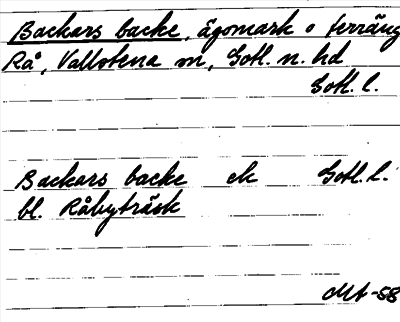 Backars backe, ägomark o terräng
Rå, Vallstena sn, Gotl. n. hd
Gotl. l.
Backars backe ek Gotl. l.
bl. Råbyträsk
-58